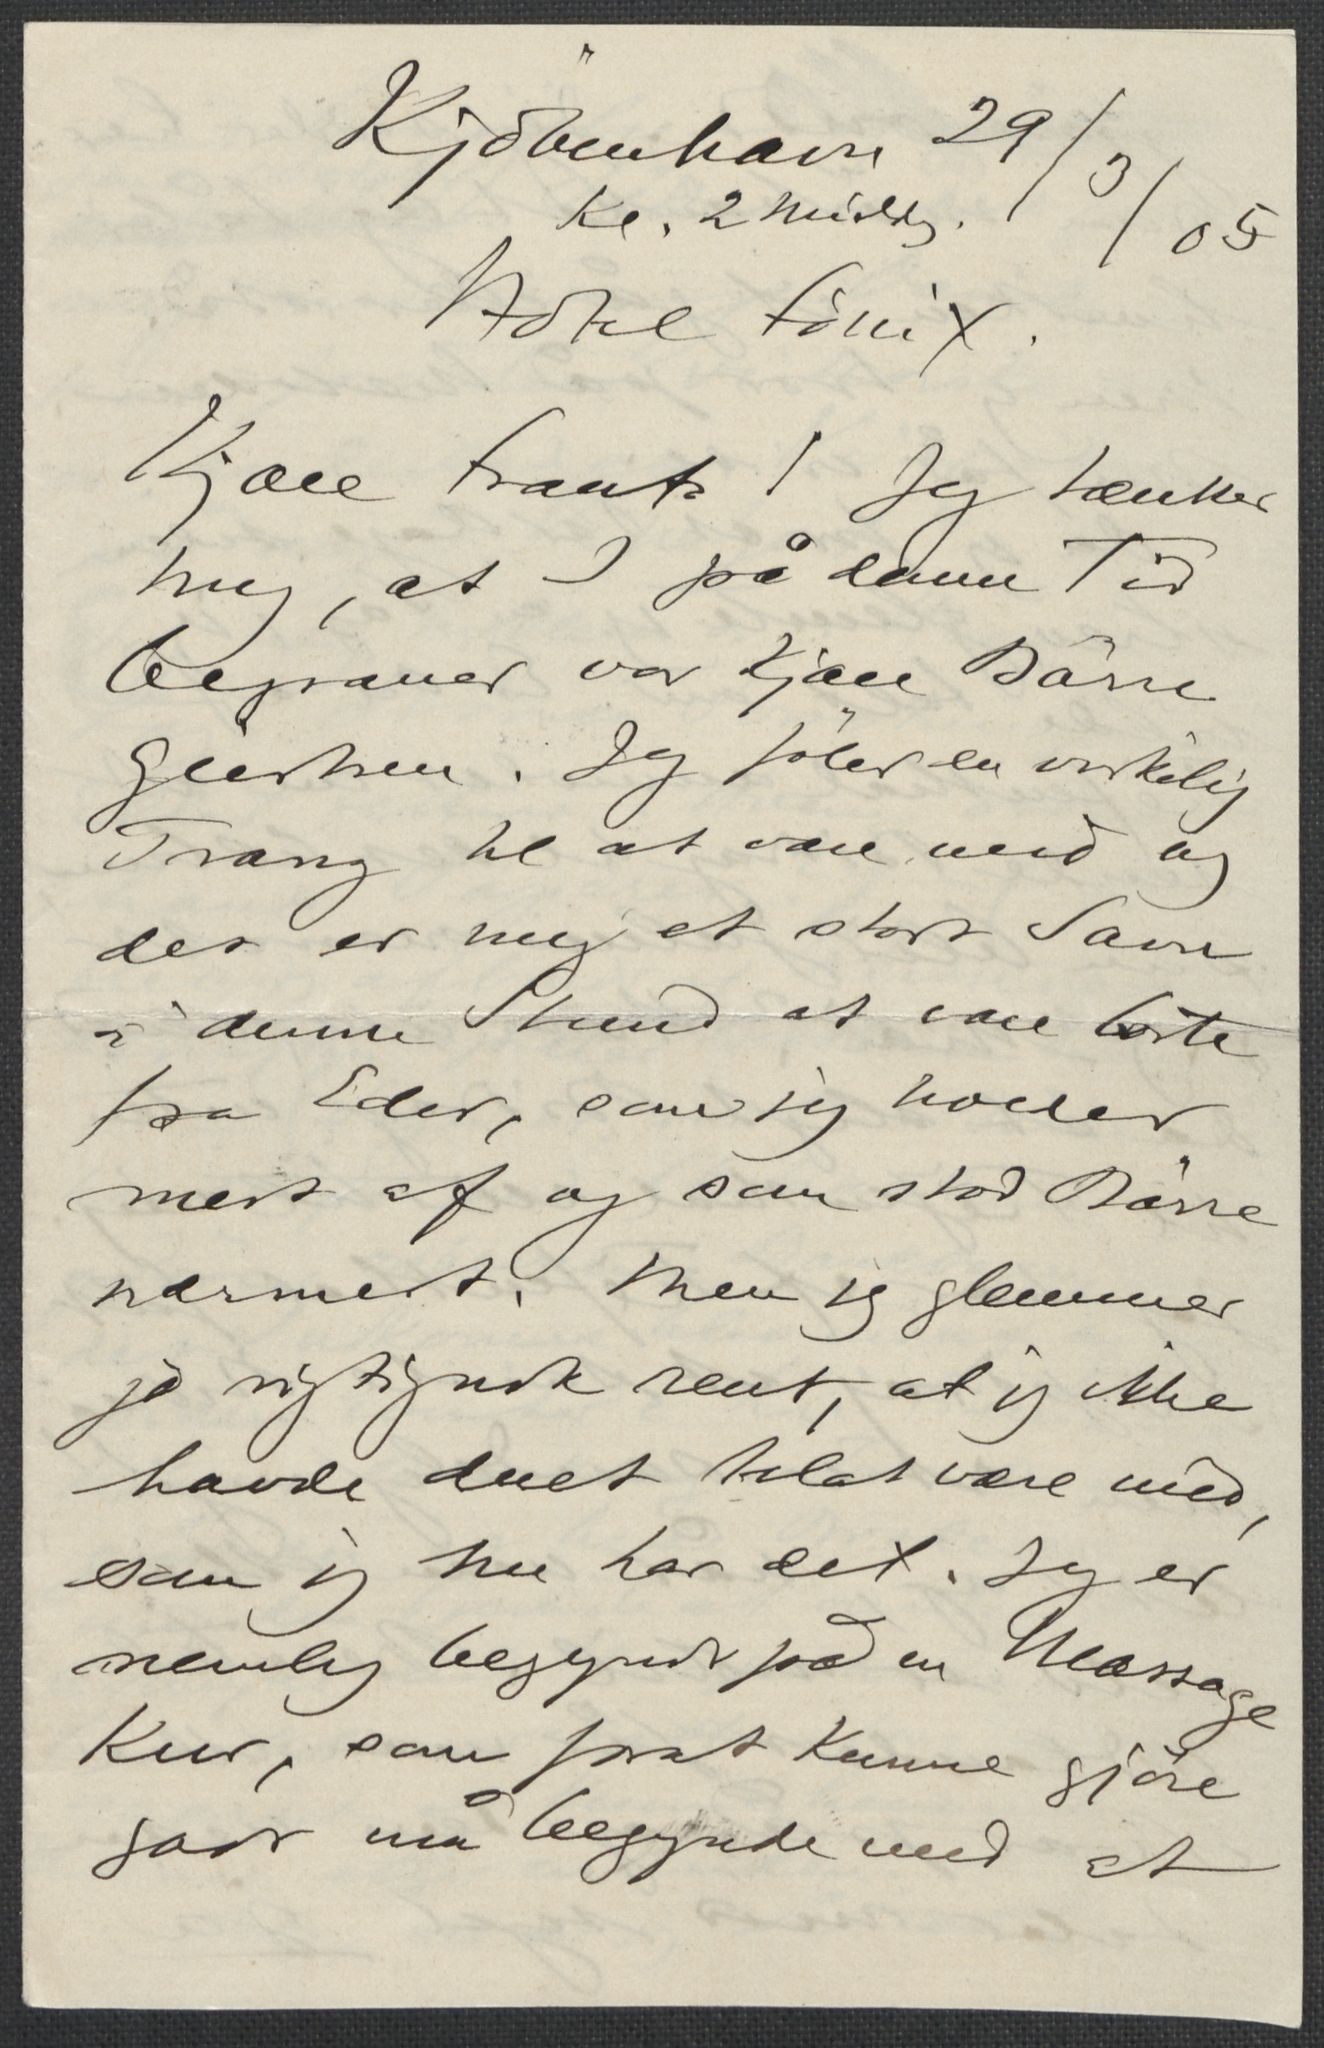 Kjöbenhavn 29/3/05
Kl. 2 Middg.
Hotel Fönix.
Kjære Frants! Jeg tænker
mig, at I på denne Tid
begraver vor kjære Börre
Giertsen. Jeg föler en virkelig
Trang til at være med og
det er mig et stort Savn
i denne Stund at være borte
fra Eder, som jeg holder
mest af og som stod Börre
nærmest. Men jeg glemmer
jo rigtignok rent, at jeg ikke
havde duet til at være med,
som jeg nu har det. Jeg er
nemlig begyndt på en Massage
Kur, som forat kunne gjöre
godt må begynde med at